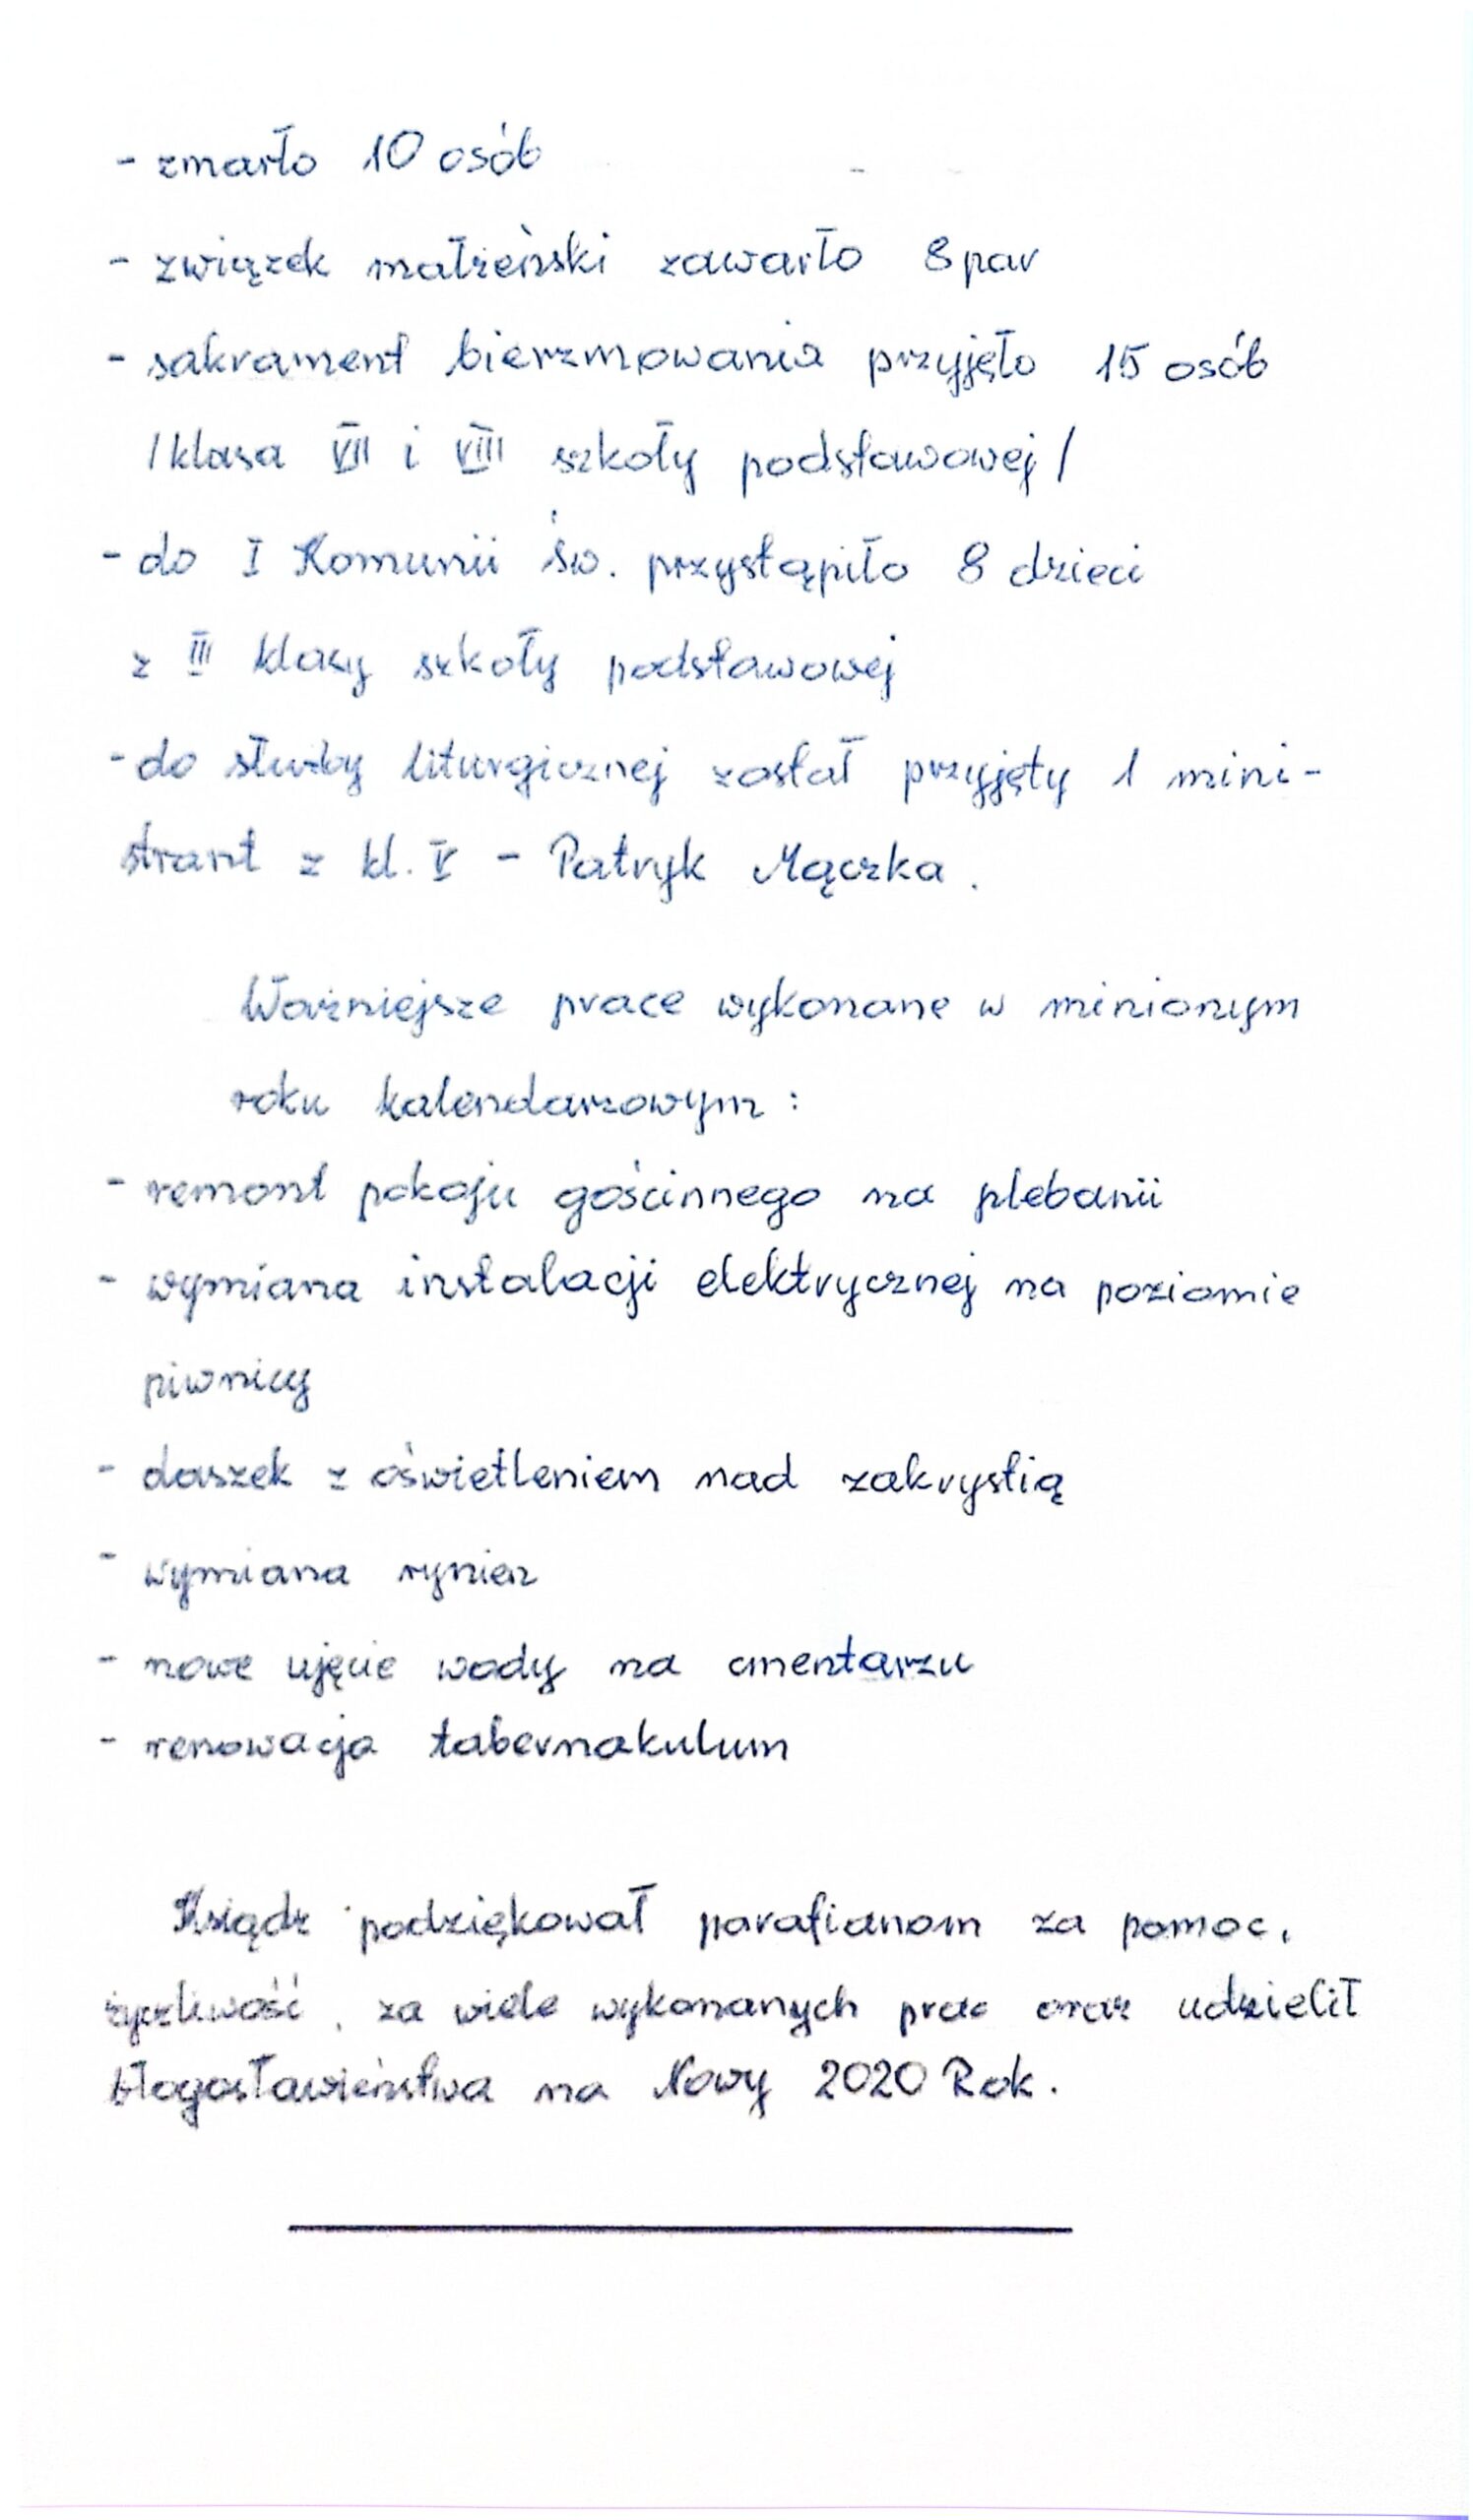 - zmarło 10 osób
- związek małżeński zawarło 8 par
- sakrament bierzmowania przyjęło 15 osób
/klasa VII i VIII szkoły podstawowej/
- do I Komunii św. przystąpiło 8 dzieci
z III klasy szkoły podstawowej
- do służby liturgicznej został przyjęty 1 mini-
strant z kl. V - Patryk Mączka.
Ważniejsze prace wykonane w minionym
roku kalendarzowym:
- remont pokoju gościnnego na plebanii
- wymiana instalacji elektrycznej na poziomie
piwnicy
- daszek z oświetleniem nad zakrystią
- wymiana rynien
- nowe ujęcie wody na cmentarzu
- renowacja tabernakulum
Ksiądz podziękował parafianom za pomoc,
życzliwość, za wiele wykonanych prac oraz udzielił
błogosławieństwa na Nowy 2020 Rok.